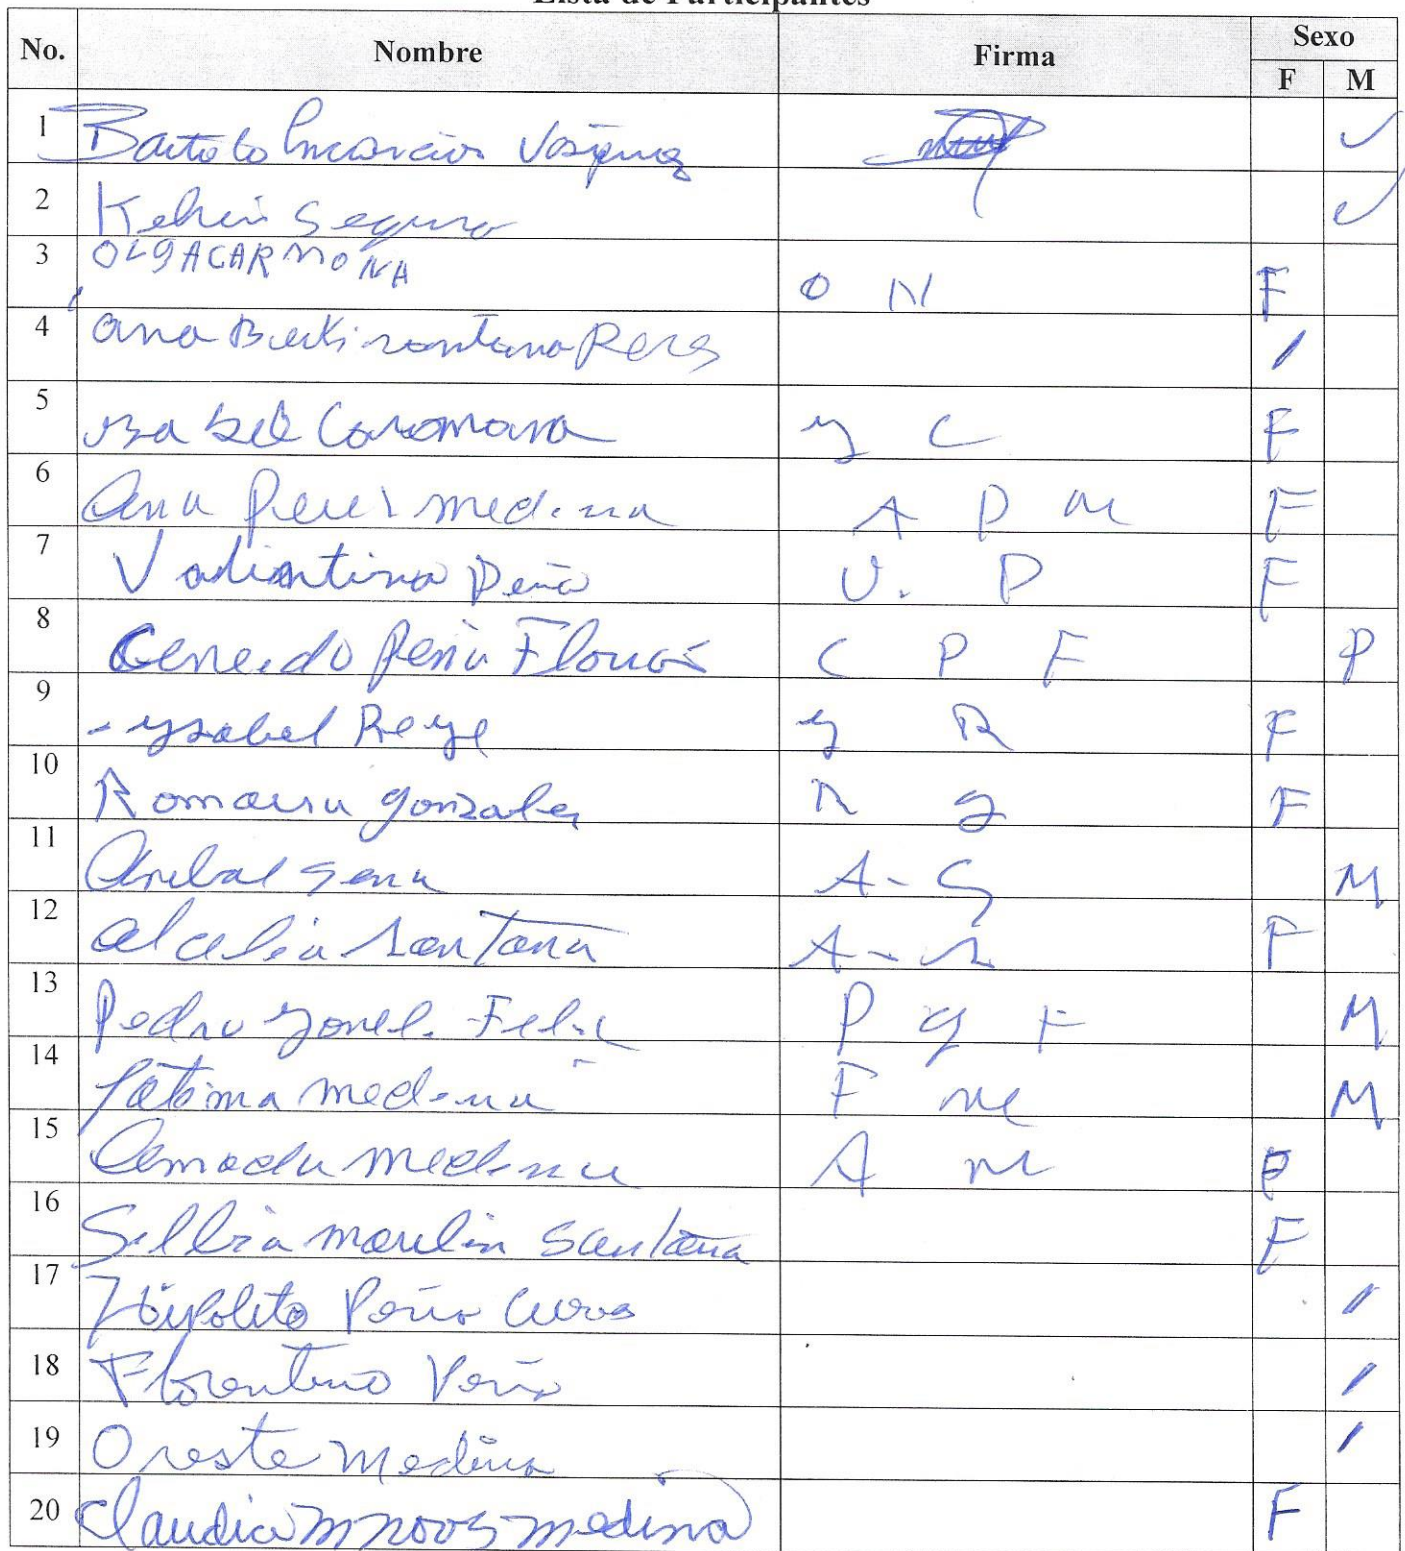 Lista de Participantes
No. Nombre Firma Sexo
F M
1 Bartolo Encarnación Vásquez ✓
2 Kelvin Segura ✓
3 OLGACARMONA O N F
4 ana Santana Peres /
5 ysabel Caromana y C F
6 Ana Perez medina A P M F
7 Valintina Peña V. P F
8 Peña C P F P
9 - ysabel Reye y R F
10 Romaira gonzalez R g F
11 Anibal Sena A - S M
12 Santana A - S F
13 Pedro Feliz P y F M
14 fatima medina F M M
15 Amada Medina A M F
16 Sillbia marilin Santana F
17 Hipolito Peña Cuevas /
18 Florentino Peña /
19 Oreste Medina /
20 Claudia medina F